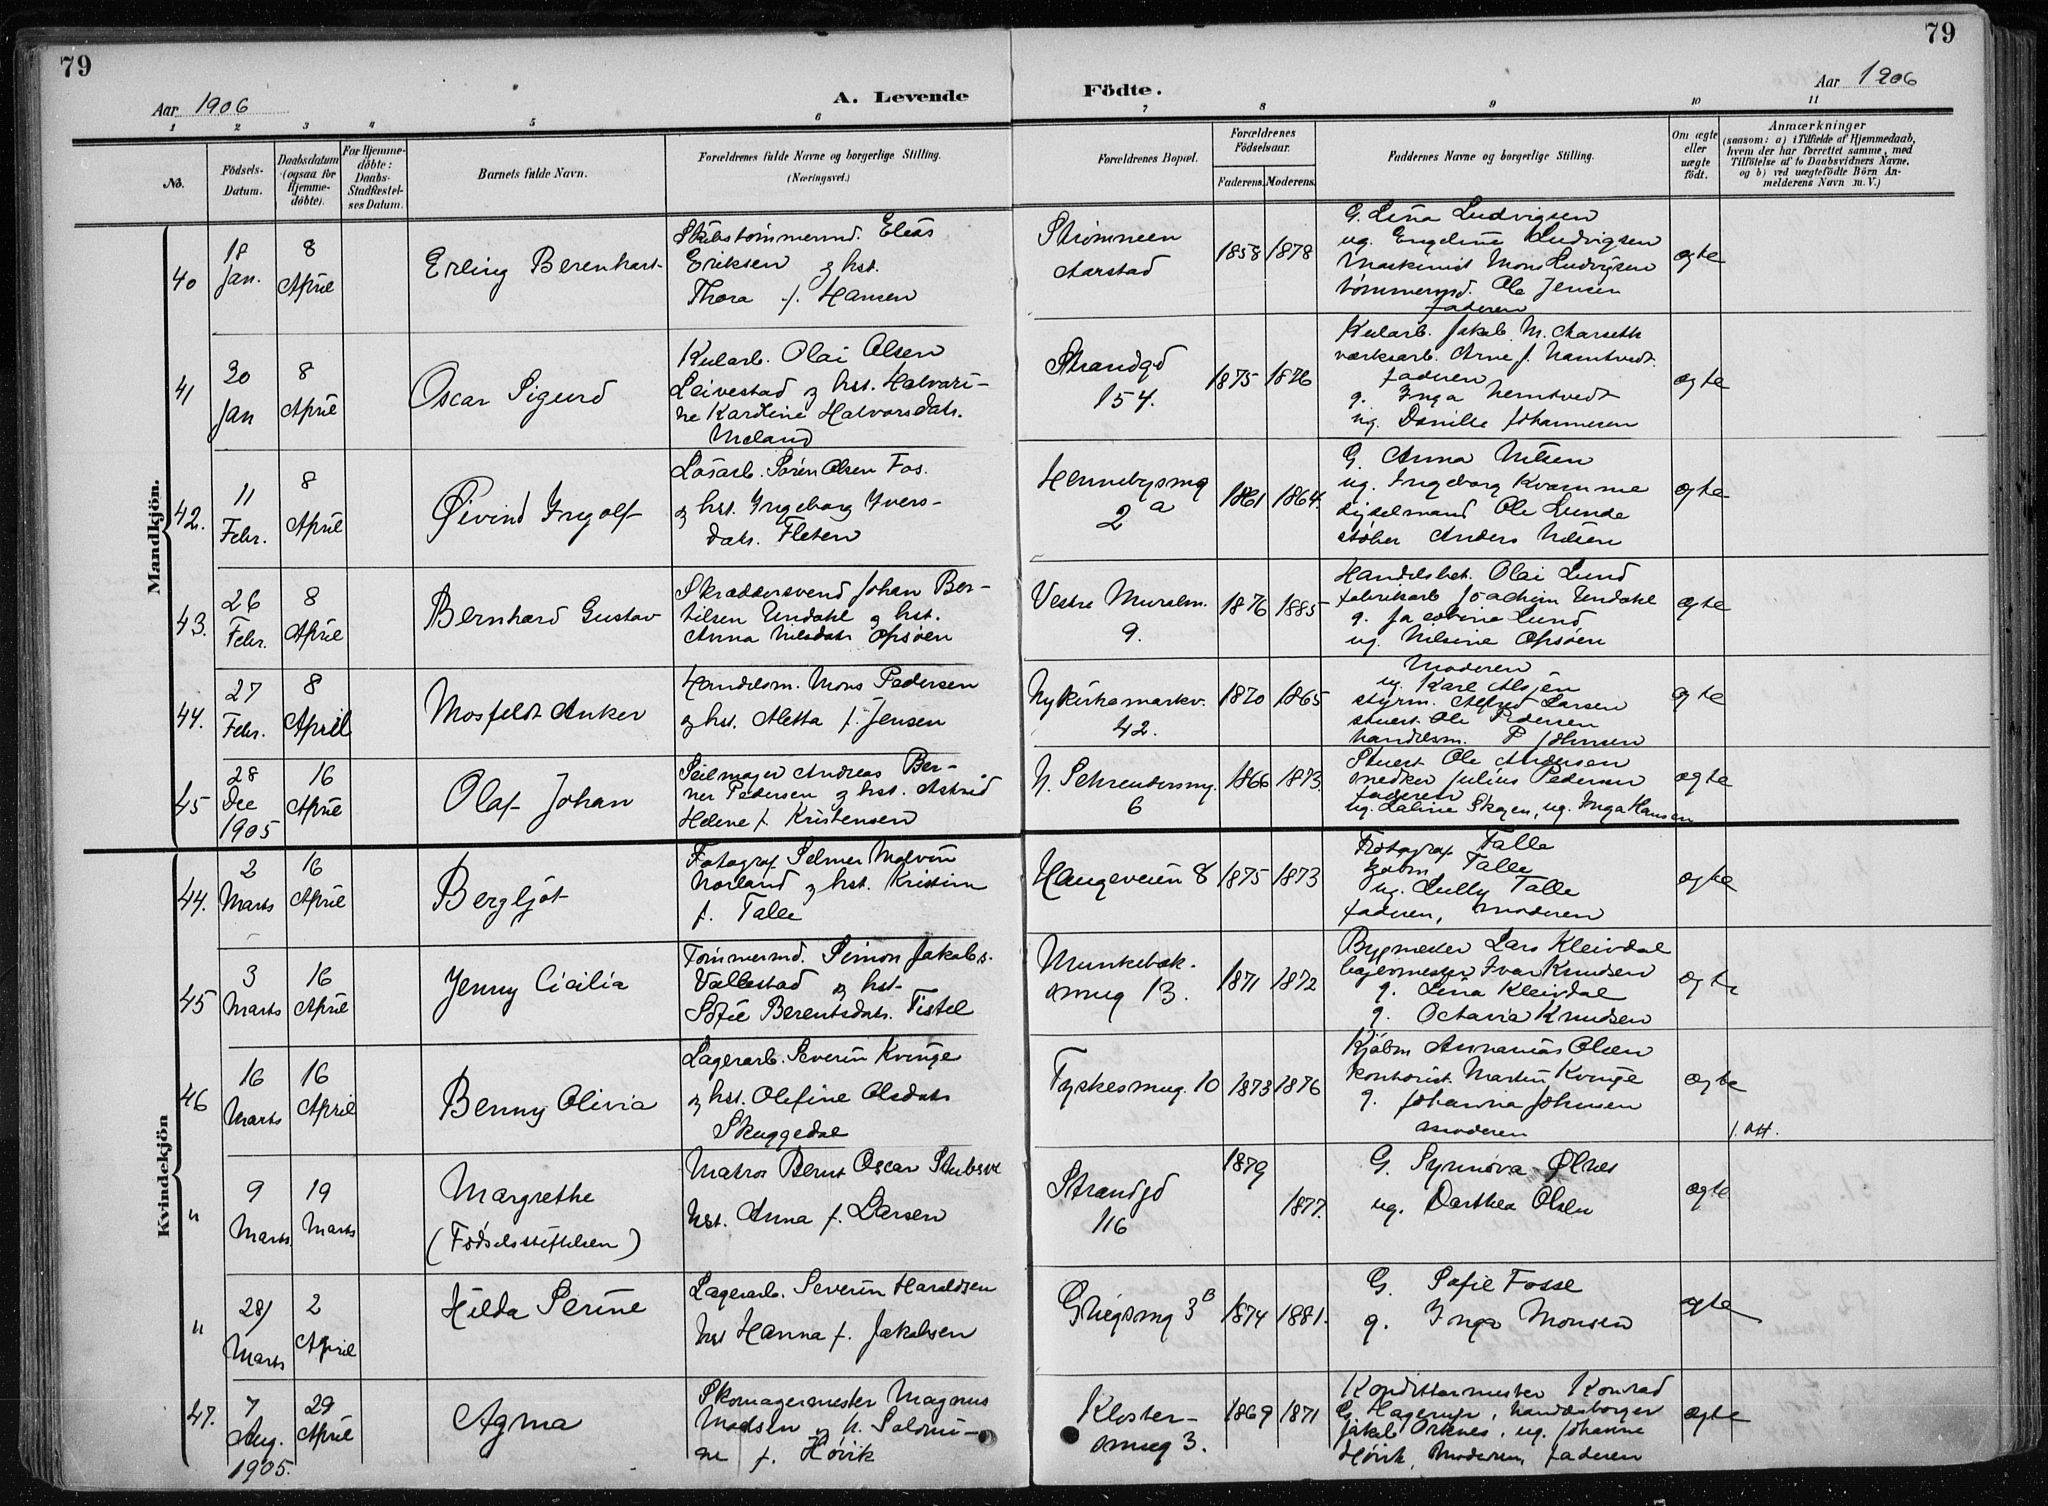 79
79
Aar 1906
A. Levende
Födte.
Aar 1906
1 2 3 4 5 6 7 8 9 10 11
No.
Födsels-
Datum.
Daabsdatum
(ogsaa for
Hjemme-
döbte).
For Hjemme-
döbte:
Daabs-
Stadfæstel-
ses Datum.
Barnets fulde Navn.
Forældrenes fulde Navne og borgerlige Stilling.
(Næringsvei.)
Forældrenes Bopæl.
Forældrenes
Födselsaar.
Faderens. Moderens.
Faddernes Navne og borgerlige Stilling.
Om ægte
eller
uægte
födt.
Anmærkninger
(saasom: a) i Tilfælde af Hjemmedaab,
hvem der har forrettet samme, med
Tilföielse af to Daabsvidners Navne,
og b) ved uægtefödte Börn An-
melderens Navn m. V.)
Mandkjön.
40
18
Jan.
8
April
Erling Berenhart
Skibstømmermd. Elias
Eriksen & hst.
Thora f. Hansen
Strømmeen
Aarstad
1858 1878
G. Lina Ludvigsen
ug. Engeline Ludvigsen
Maskinist Mons Ludvigsen
tømmermd. Ole Jensen
faderen
ægte
41
30
Jan
8
April
Oscar Sigurd
Kularb. Olai Olsen
Leivestad & hst. Halvari-
ne Karoline Halvorsdatr.
Meland
Strandgd
154.
1875 1876
Kularb. Jakob M. Aarseth
værksarb. Arne J. Namtvedt
faderen
g. Inga Nemtvedt
ug. Danille Johannesen
ægte
42.
11
Febr.
8
April
Øivind Ingolf
Løsarb. Søren Olsen Fos.
& hst. Ingeborg Ivers-
datr. Fleten
Hennebysmg
2 a
1861 1864.
G. Anna Nilsen
ug. Ingeborg Kvamme
Ole Lunde
støber Anders Nilsen
ægte
43.
26
Febr.
8
April
Bernhard Gustav
Skræddersvend Johan Ber-
tilsen Undahl & hst.
Anna Nilsdatr Opsøen
Vestre Muralm.
9.
1876 1885
Handelsbet. Olai Lund
fabrikarb Joachim Undahl
g. Jacobine Lund
ug. Nilsine Opsøen
ægte
44.
27
Febr.
8
April
Mosfeldt Anker
Handelsm. Mons Pedersen
& hst. Aletta f. Jensen
Nykirkemarkv.
42.
1870 1865
Moderen
ug. Karl Alsjen
styrm. Alfred Larsen
stuert. Ole Pedersen
handelsm. P Johnsen
ægte
45
28
Dec
1905
16
April
Olaf Johan
Seilmager Andreas Ber-
ner Pedersen & hst. Astrid
Helene f. Kristensen
N. Schreudersmg.
6
1866 1873.
Stuert Ole Andersen
snedker Julius Pedersen
faderen
ug. Laline Skagen, ug. Inga Hansen
ægte
Kvindekjön
44.
2
Marts
16
April
Bergljot
Fotograf Selmer Malvin
Norland & hst. Kristine
f. Talle
Haugeveien 8
1875 1873
Fotograf Talle
Kjøbm Talle
ug. Lully Talle
faderen, moderen
ægte
45
3
Marts
16
April
Jenny Cicilia
Tømmermd. Simon Jakobs.
Vallestad & hst.
Sofie Berentsdatr. Tistel
Munkebæk-
smug 13.
1871 1872
Bygmester Lars Kleivdal
bagermester Ivar Knudsen
g. Lina Kleivdal
g. Octavia Knudsen
ægte
46
16
Marts
16
April
Benny Olivia
Lagerarb. Severin Kvinge
& hst. Olefine Olsdatr
Skuggedal
Tyskesmug. 10
1873 1876
Kjøbm Annanias Olsen
Kontorist. Martin Kvinge
g. Johanna Johnsen
moderen
ægte
1. att.
"
9
Marts.
19
Marts
Margrethe
(Fødselsstiftelsen)
Matros Bernt Oscar
hst. Anna f. Larsen
Strandgd
116
1879
1877.
G. Synnøva Ølnes
ug. Darthea Olsen
ægte
"
28/
Marts
2
April
Hilda Serine
Lagerarb. Severin Haraldsen
hst Hanna f. Jakobsen
Griegsmg 3 B
1874 1881.
G. Sofie Fosse
g. Inga Monsen
ægte
47.
7
Aug.
1905.
29
April
Agma
Skomagermester Magnus
Madsen & h. Salomi-
ne f. Høvik
Kloster-
smug 3.
1869 1871
Kondittormester Konrad
G. Hagerup, handelsborger
Jakob Orknes, ug. Johanne
Høvik, Moderen, faderen
ægte